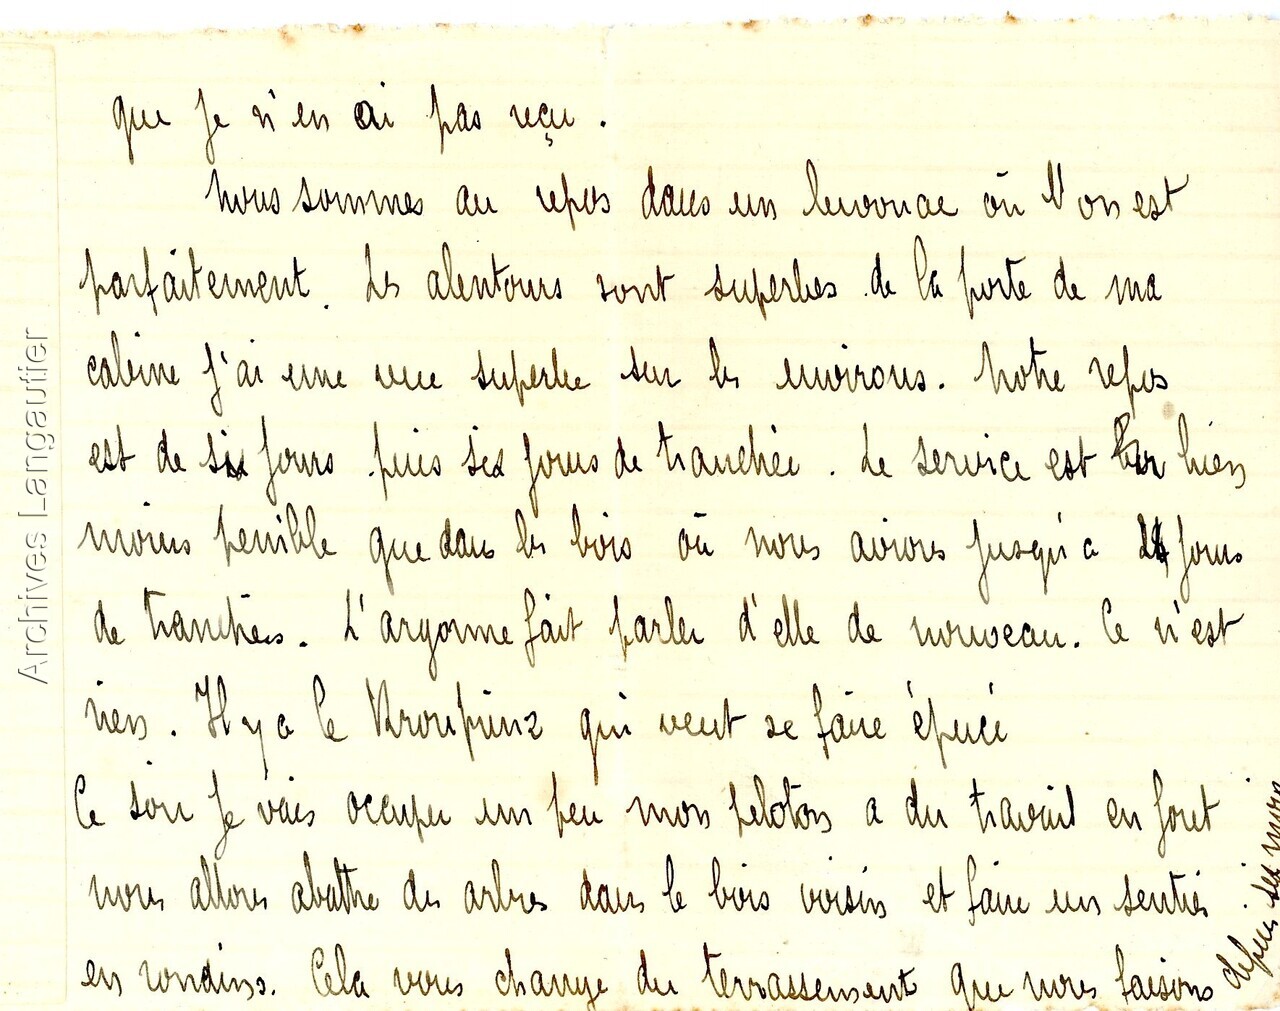 que je n'en ai pas reçu.
Nous sommes au repos dans un bivouac où l'on est
parfaitement. Les alentours sont superbes de la porte de ma
cabine j'ai une vue superbe sur les environs. Notre repos
est de six jours puis six jours de tranchée. Le service est bien
moins penible que dans les bois où nous avions jusqu'a 24 jours
de tranchées. L'argonne fait parler d'elle de nouveau. Ce n'est
rien. Il y a le Kronprinz qui veut se faire
Ce soir je vais occuper un peu mon peloton a du travail en foret
nous allons abattre des arbres dans le bois voisin et faire un sentier
en rondins. Cela vous change du terrassement que nous faisons
depuis six mois
Archives Langautier